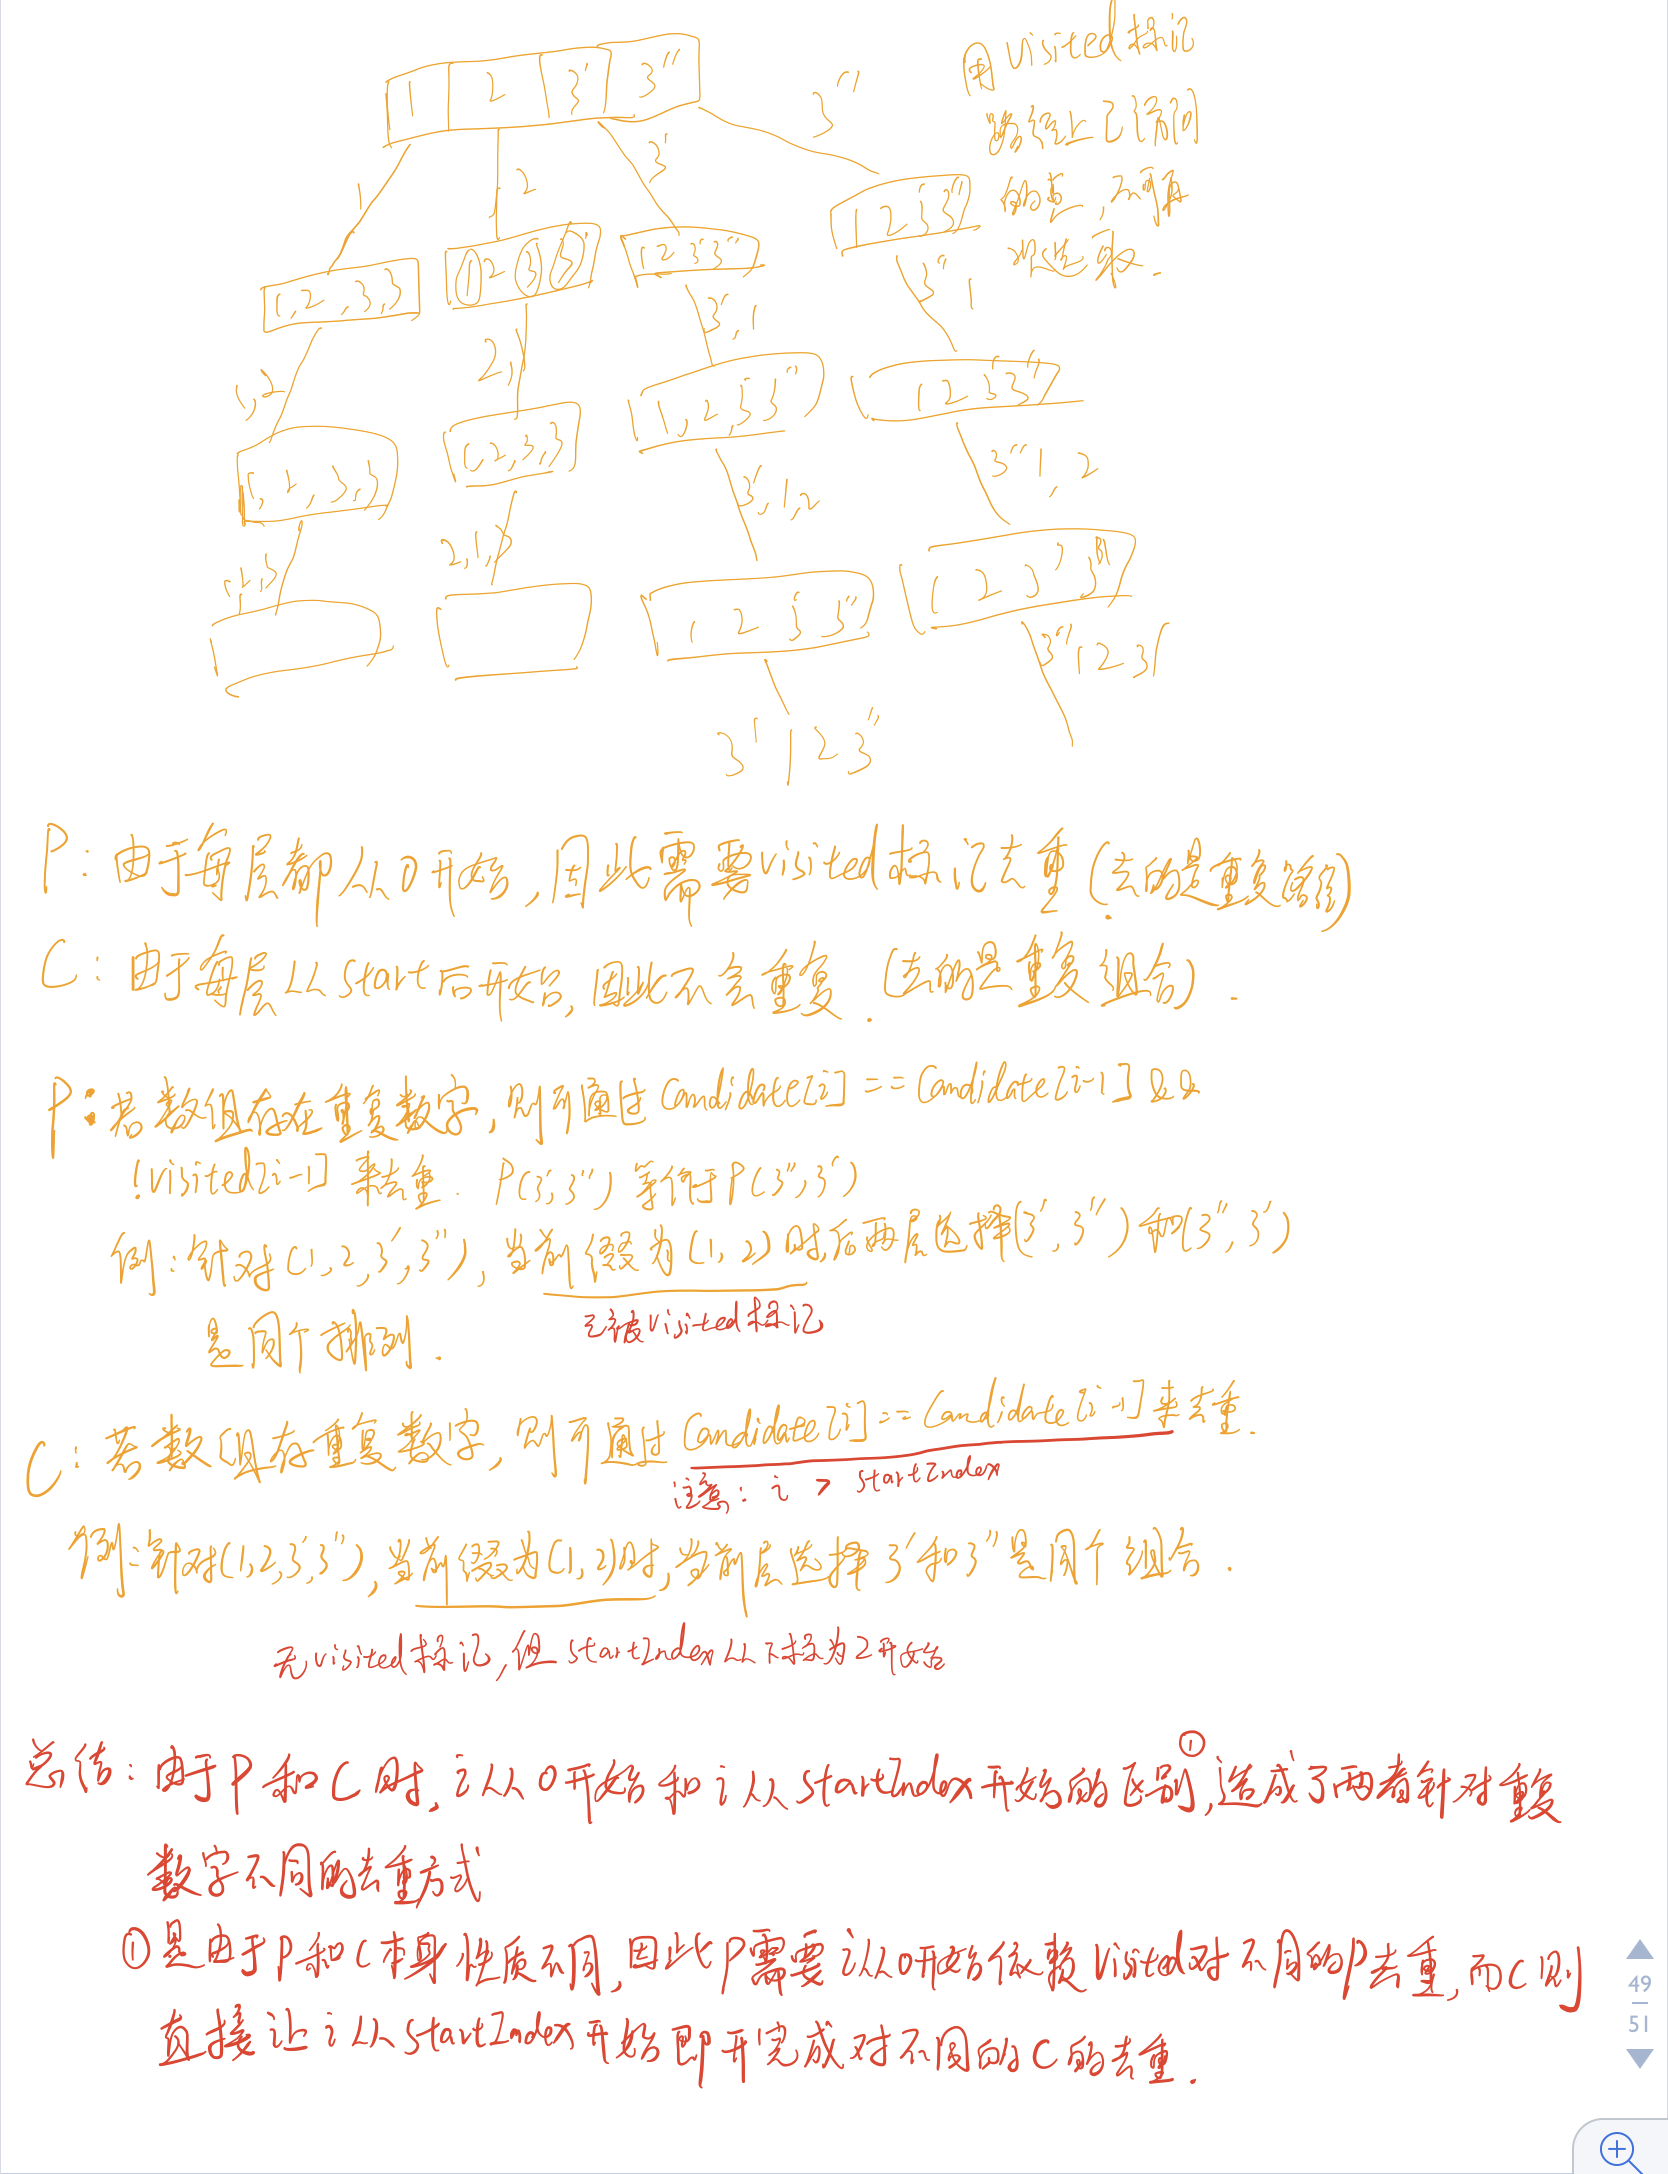 1 2 3' 3''
用visited标记
路径上已访问
的点,不可再
次选取.
1 2 3' 3''
1,2,3,3
1 2 3 3'
1 2 3' 3''
1 2 3' 3''
1,2
2,1
3',1
3'' 1
1,2,3,3
1,2,3,3
1,2,3' 3''
1 2 3' 3''
1,2,3
2,1,3
3',1,2
3'' 1,2
1 2 3' 3''
1 2 3' 3''
3' 1 2 3''
3'' 1 2 3'
P:由于每层都从0开始,因此需要visited标记去重(去的是重复路径)
C:由于每层从start后开始,因此不会重复.(去的是重复组合).
P:若数组存在重复数字,则可通过Candidate[i]==Candidate[i-1]&&
!visited[i-1]来去重. P(3',3'')等价于P(3'',3')
例:针对(1,2,3',3''),当前缀为(1,2)时,后两层选择(3',3'')和(3'',3')
已被visited标记
是同个排列.
C:若数组存重复数字,则可通过Candidate[i]==Candidate[i-1]来去重.
注意:i > startIndex
例:针对(1,2,3',3''),当前缀为(1,2)时,当前层选择3'和3''是同个组合.
无visited标记,但startIndex从下标为2开始
总结:由于P和C时,i从0开始和i从startIndex开始的区别①,造成了两者针对重复
数字不同的去重方式
①是由于P和C本身性质不同,因此P需要i从0开始依赖visited对不同的P去重,而C则
直接让i从startIndex开始即可完成对不同的C的去重.
49
51